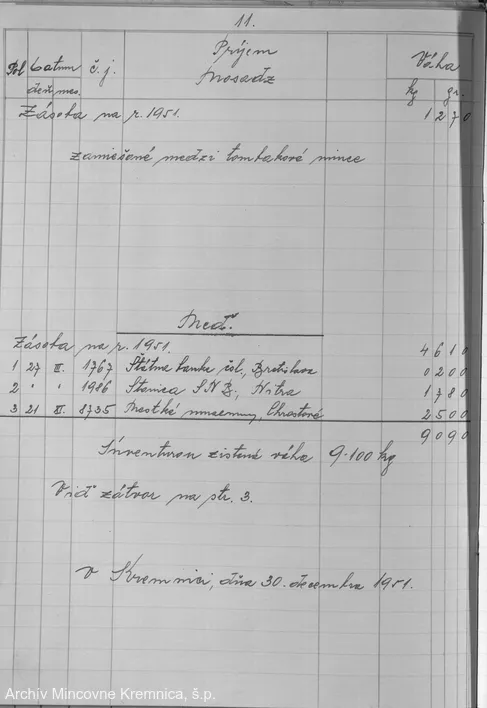 11.
Pol Datum č. j. Príjem Váha
deň mes. Mosadz kg gr.
Zásoba na r. 1951. 1 270
zamiešané medzi tombakové mince
Meď.
Zásoba na r. 1951. 4 610
1 27 III. 1767 Štátna banka čsl., Bratislava 0 200
2 " " 1986 Stanica SNB, Nitra 1 780
3 21 XI. 8735 Mestské museum, 2 500
9 090
Inventurou zistená váha 9.100 kg
Viď zátvor na str. 3.
V Kremnici, dňa 30. decembra 1951.
Archív Mincovne Kremnica, š.p.